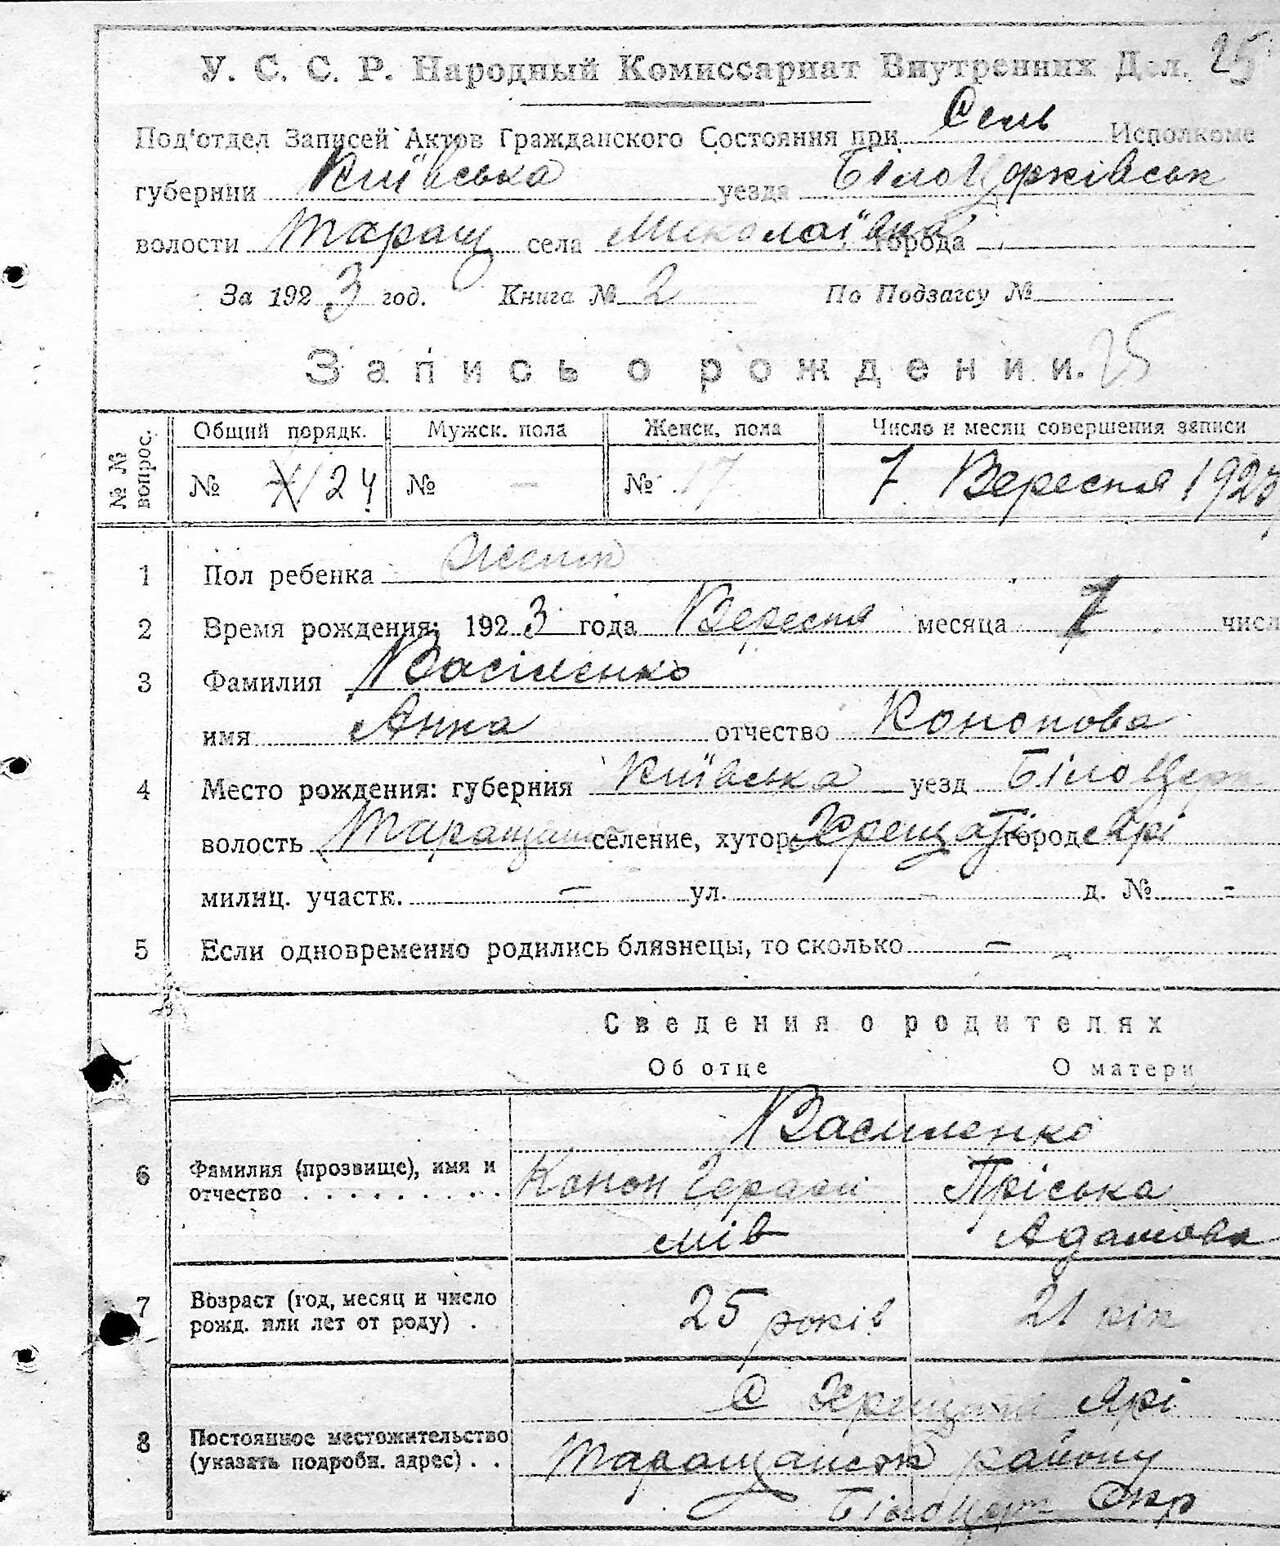 У. С. С. Р. Народный Комиссариат Внутренних Дел. 25
Под'отдел Записей Актов Гражданского Состояния при Сель Исполкоме
губернии Київська уезда БілоЦерківськ
волости Таращ села Миколаївка города
За 1923 год. Книга № 2 По Подзагсу №
Запись о рождении. 25
№ № вопрос. Общий порядк. Мужск. пола Женск. пола Число и месяц совершения записи
№ 24 № — № 17 7 Вересня 1923
1 Пол ребенка
2 Время рождения: 1923 года Вересня месяца 7 числ
3 Фамилия Василенко
имя Анна отчество Кононова
4 Место рождения: губерния Київська уезд БілоЦерк
волость Таращан селение, хутор Хрещаті городе Ярі
милиц. участк. — ул. — д. № -
5 Если одновременно родились близнецы, то сколько —
Сведения о родителях
Об отце О матери
Василенко
6 Фамилия (прозвище), имя и Конон Гераси Пріська
отчество . . . . . . . . . мів Адамова
7 Возраст (год, месяц и число 25 років 21 рік
рожд. или лет от роду) . .
С Хрещаті Ярі
8 Постоянное местожительство Таращанськ району
(указать подробн. адрес) . . БілоЦерк Окр